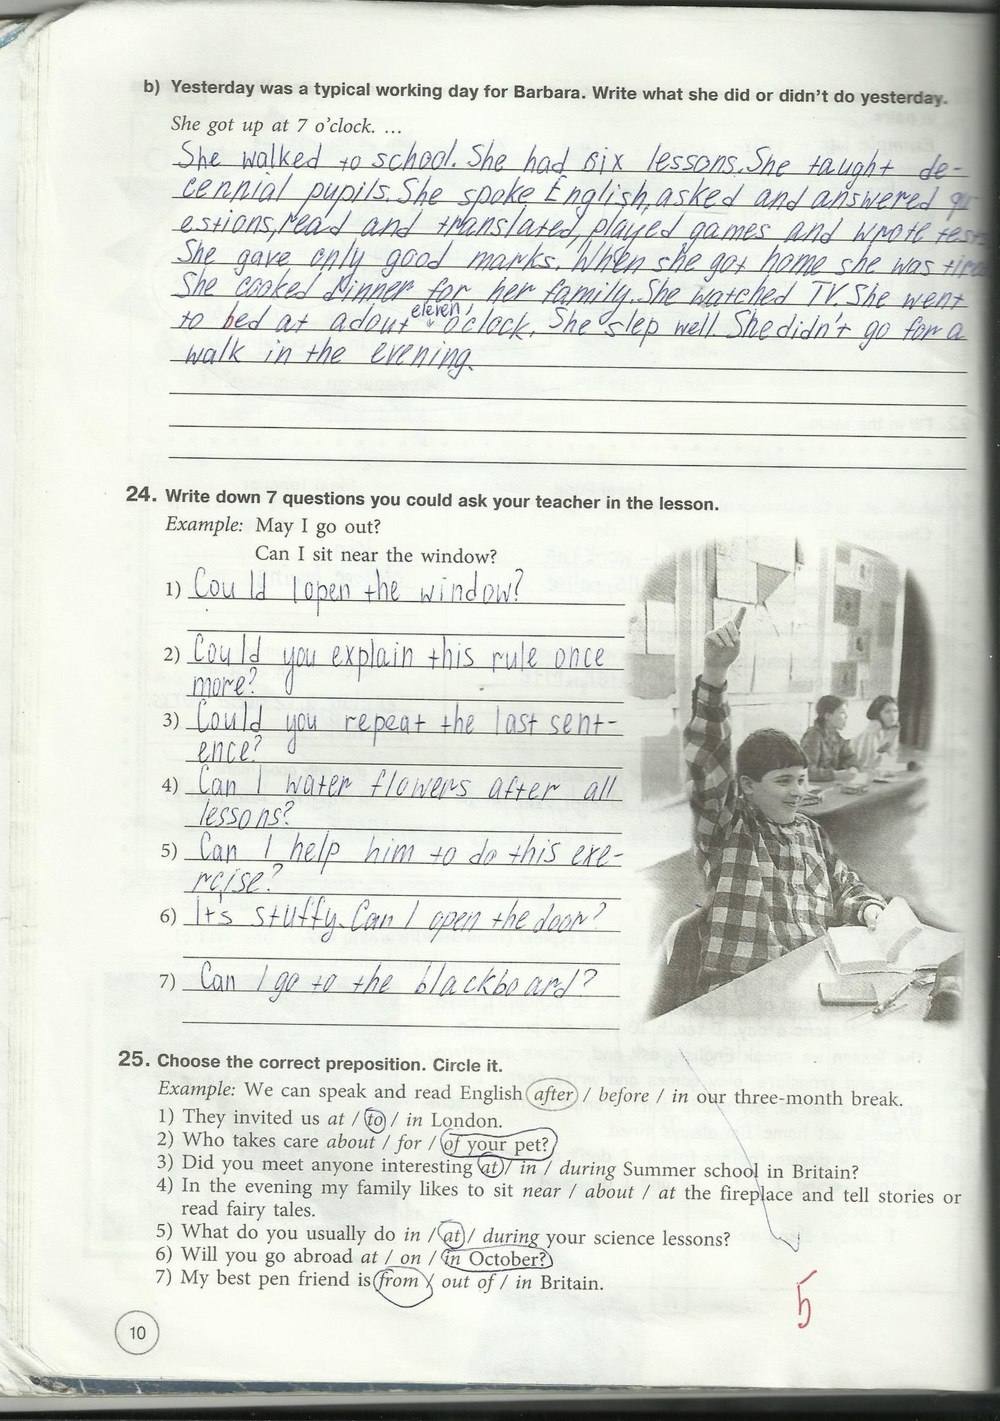 b) Yesterday was a typical working day for Barbara. Write what she did or didn't do yesterday.
She got up at 7 o'clock. ...
She walked to school. She had six lessons. She taught de-
cennial pupils. She spoke English, asked and answered qu
estions, read and translated, played games and wrote tests
She gave only good marks. When she got home she was tired
She cooked dinner for her family. She watched TV. She went
to bed at adout eleven o'clock. She slep well. She didn't go for a
walk in the evening.
24. Write down 7 questions you could ask your teacher in the lesson.
Example: May I go out?
Can I sit near the window?
1) Could I open the window?
2) Could you explain this rule once
more?
3) Could you repeat the last sent-
ence?
4) Can I water flowers after all
lessons?
5) Can I help him to do this exe-
rcise?
6) It's stuffy. Can I open the door?
7) Can I go to the blackboard?
25. Choose the correct preposition. Circle it.
Example: We can speak and read English after / before / in our three-month break.
1) They invited us at / to / in London.
2) Who takes care about / for / of your pet?
3) Did you meet anyone interesting at / in / during Summer school in Britain?
4) In the evening my family likes to sit near / about / at the fireplace and tell stories or
read fairy tales.
5) What do you usually do in / at / during your science lessons?
6) Will you go abroad at / on / in October?
7) My best pen friend is from / out of / in Britain.
5
10